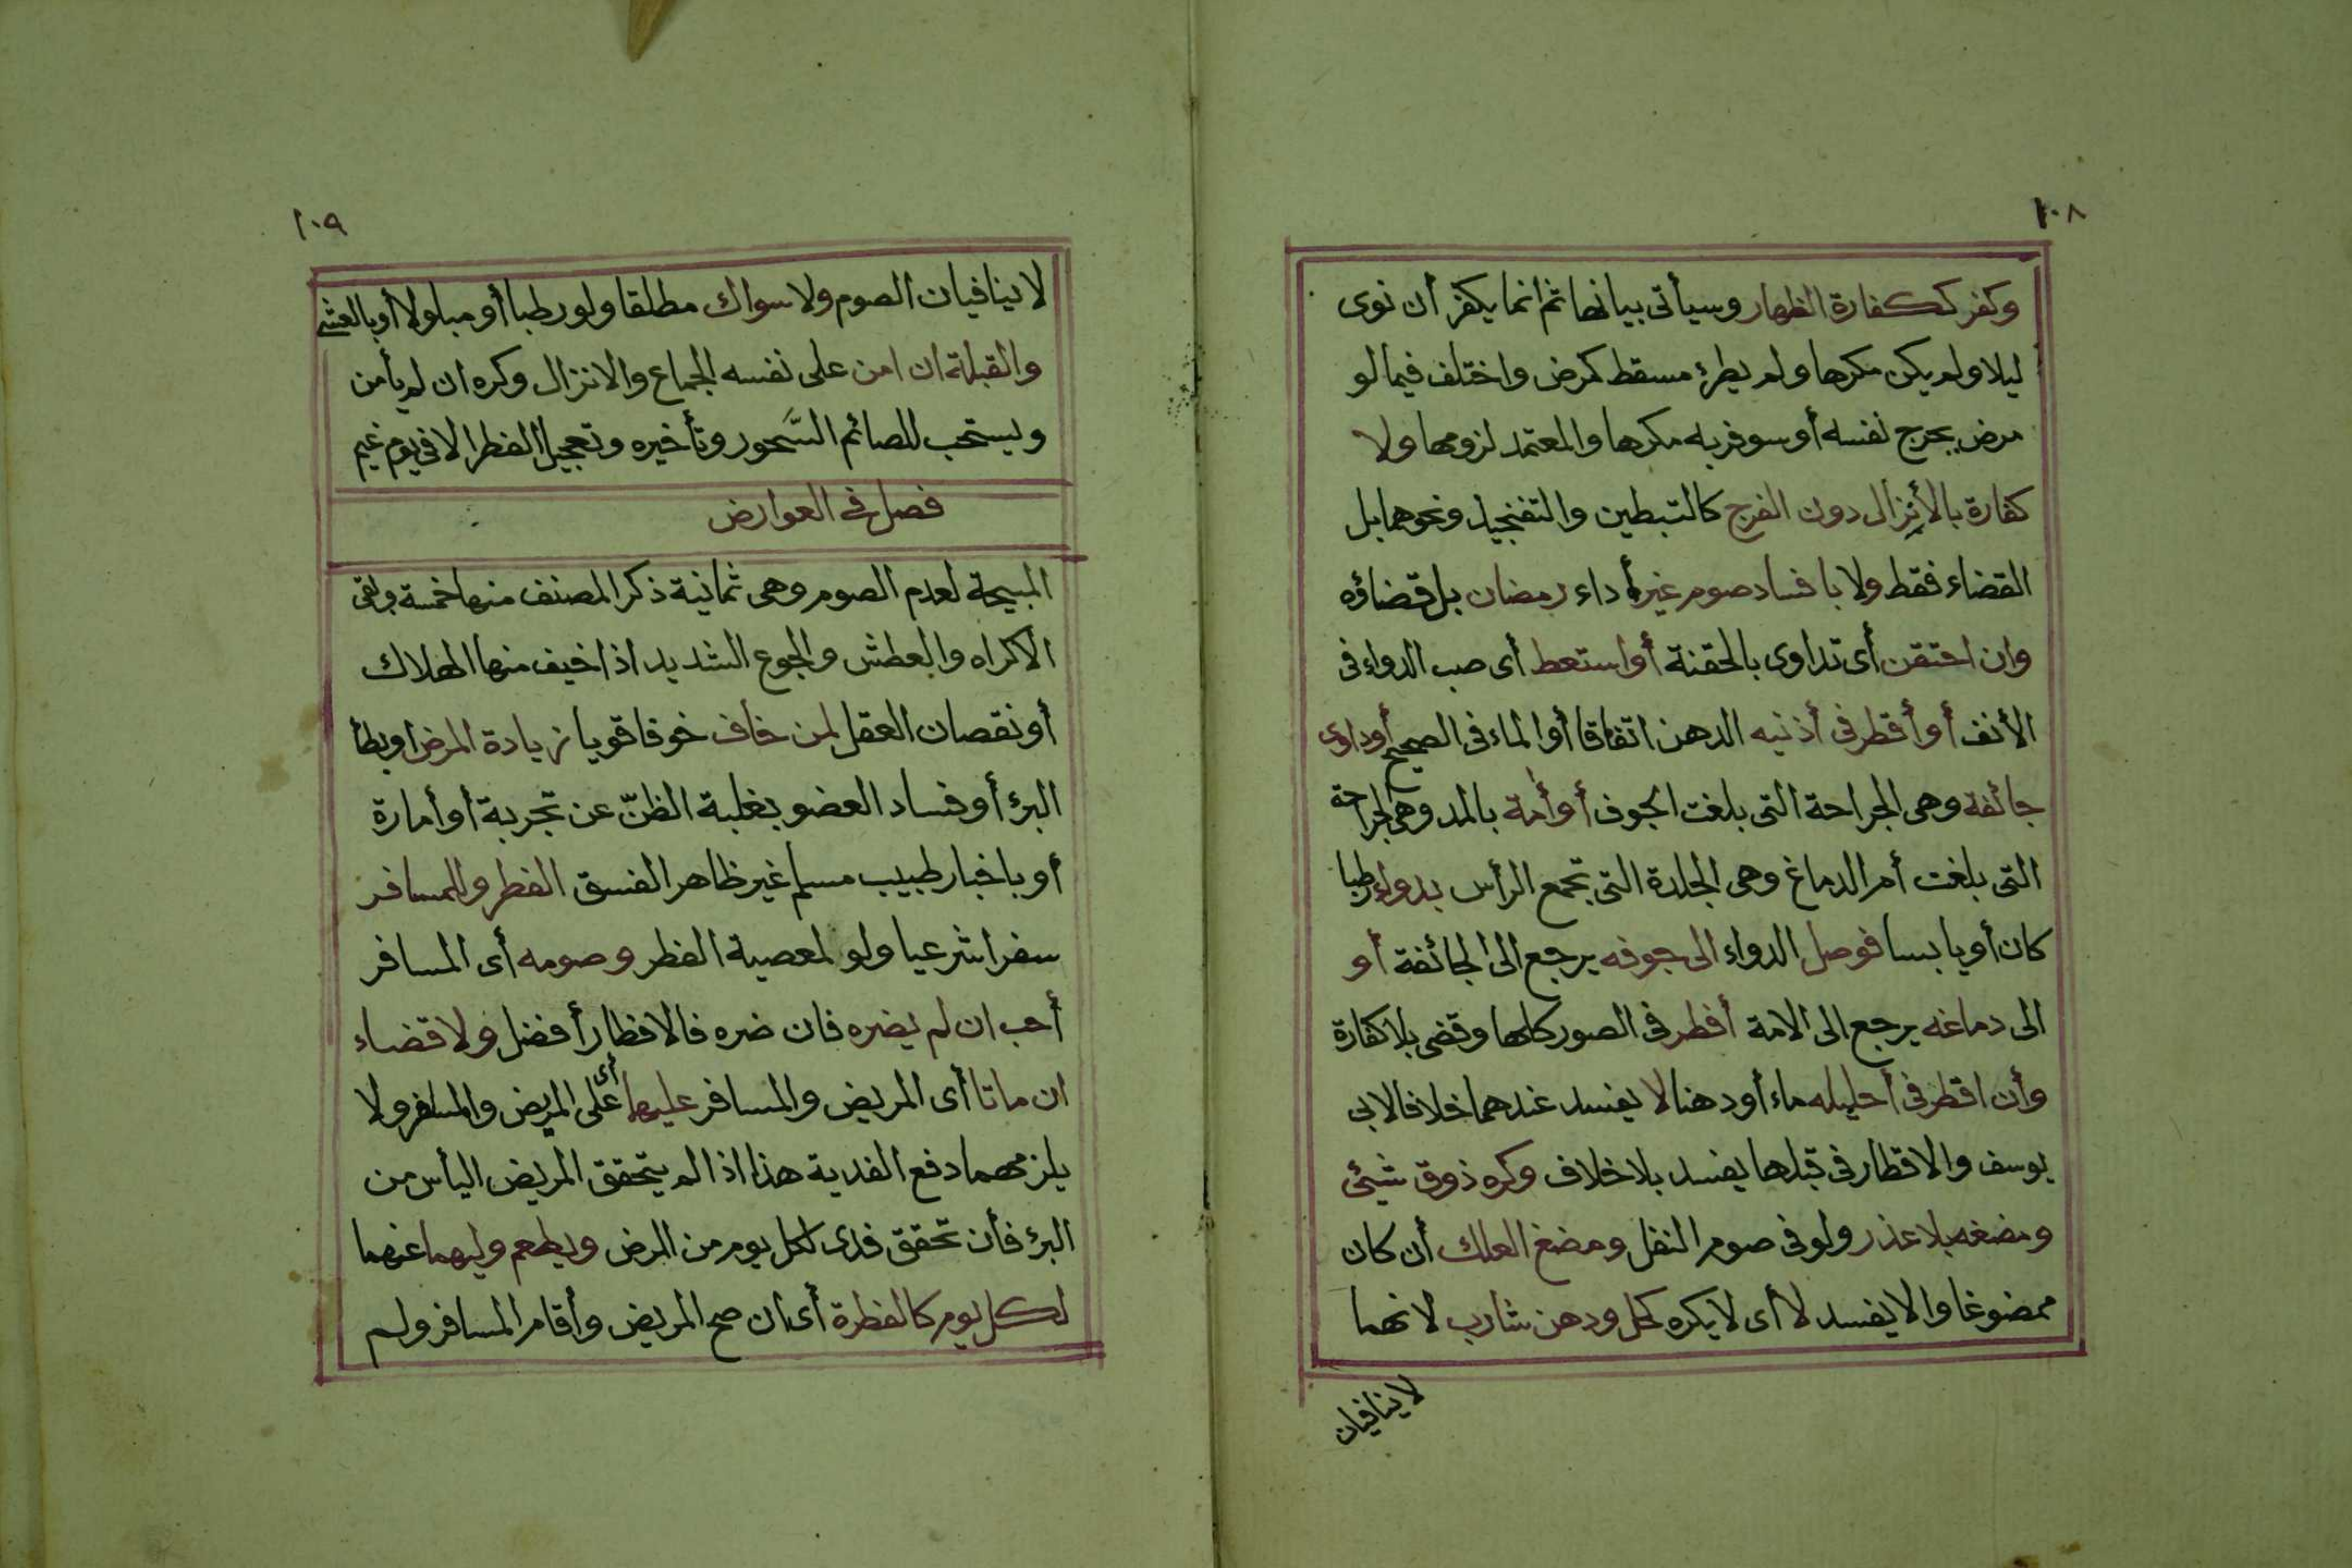 ١٠٨
وكفر ككفارة الظهار وسيأتى بيانها ثم انما يكفر أن نوى
ليلا ولم يكن مكرها ولم يطرئ مسقط كمرض واختلف فيما لو
مرض بجرح نفسه أو سوفر به مكرها والمعتمد لزومها ولا
كفارة بالأنزال دون الفرج كالتبطين والتفخيذ ونحوهما بل
القضاء فقط ولا بافساد صوم غير أداء رمضان بل قضاؤه
وان احتقن أى تداوى بالحقنة أو استعط أى صب الدواء فى
الأنف أو أقطر فى أذنيه الدهن اتفاقا أو الماء فى الصحيح أو داوى
جائفة وهى الجراحة التى بلغت الجوف أو أمة بالمد وهى الجراحة
التى بلغت أم الدماغ وهى الجلدة التى تجمع الرأس بدواء رطبا
كان أو يابسا فوصل الدواء الى جوفه يرجع الى الجائفة أو
الى دماغه يرجع الى الامة أفطر فى الصور كلها وقضى بلا كفارة
وأن اقطر فى أحليله ماء أو دهنا لا يفسد عندهما خلافا لابى
يوسف والاقطار فى قبلها يفسد بلا خلاف وكره ذوق شيئى
ومضغه بلا عذر ولو فى صوم النفل ومضغ العلك أن كان
ممضوغا والا يفسد لا أى لا يكره كحل ودهن شارب لانهما
لا ينافيان
١٠٩
لا ينافيان الصوم ولا سواك مطلقا ولو رطبا أو مبلولا أو بالعشى
والقبلة ان امن على نفسه الجماع والانزال وكره ان لم يأمن
ويستحب للصائم السَّحور وتأخيره وتعجيل الفطر الا فى يوم غيم
فصل فى العوارض
المبيحة لعدم الصوم وهى ثمانية ذكر المصنف منها خمسة وبقى
الاكراه والعطش والجوع الشديد اذا خيف منها الهلاك
أو نقصان العقل لمن خاف خوفا قويا زيادة المرض او بطأ
البرؤ أو فساد العضو بغلبة الظنّ عن تجربة أو أمارة
أو باخبار طبيب مسلم غير ظاهر الفسق الفطر وللمسافر
سفرا شرعيا ولو لمعصية الفطر وصومه أى المسافر
أحب ان لم يضره فان ضره فالافطار أفضل ولا قضاء
ان ماتا أى المريض والمسافر عليهما أى على المريض والمسافر ولا
يلزمهما دفع الفدية هذا اذا لم يتحقق المريض اليأس من
البرؤ فأن تحقق فدى لكل يوم من المرض ويطعم وليهما عنهما
لكل يوم كالفطرة أى ان صح المريض وأقام المسافر ولم